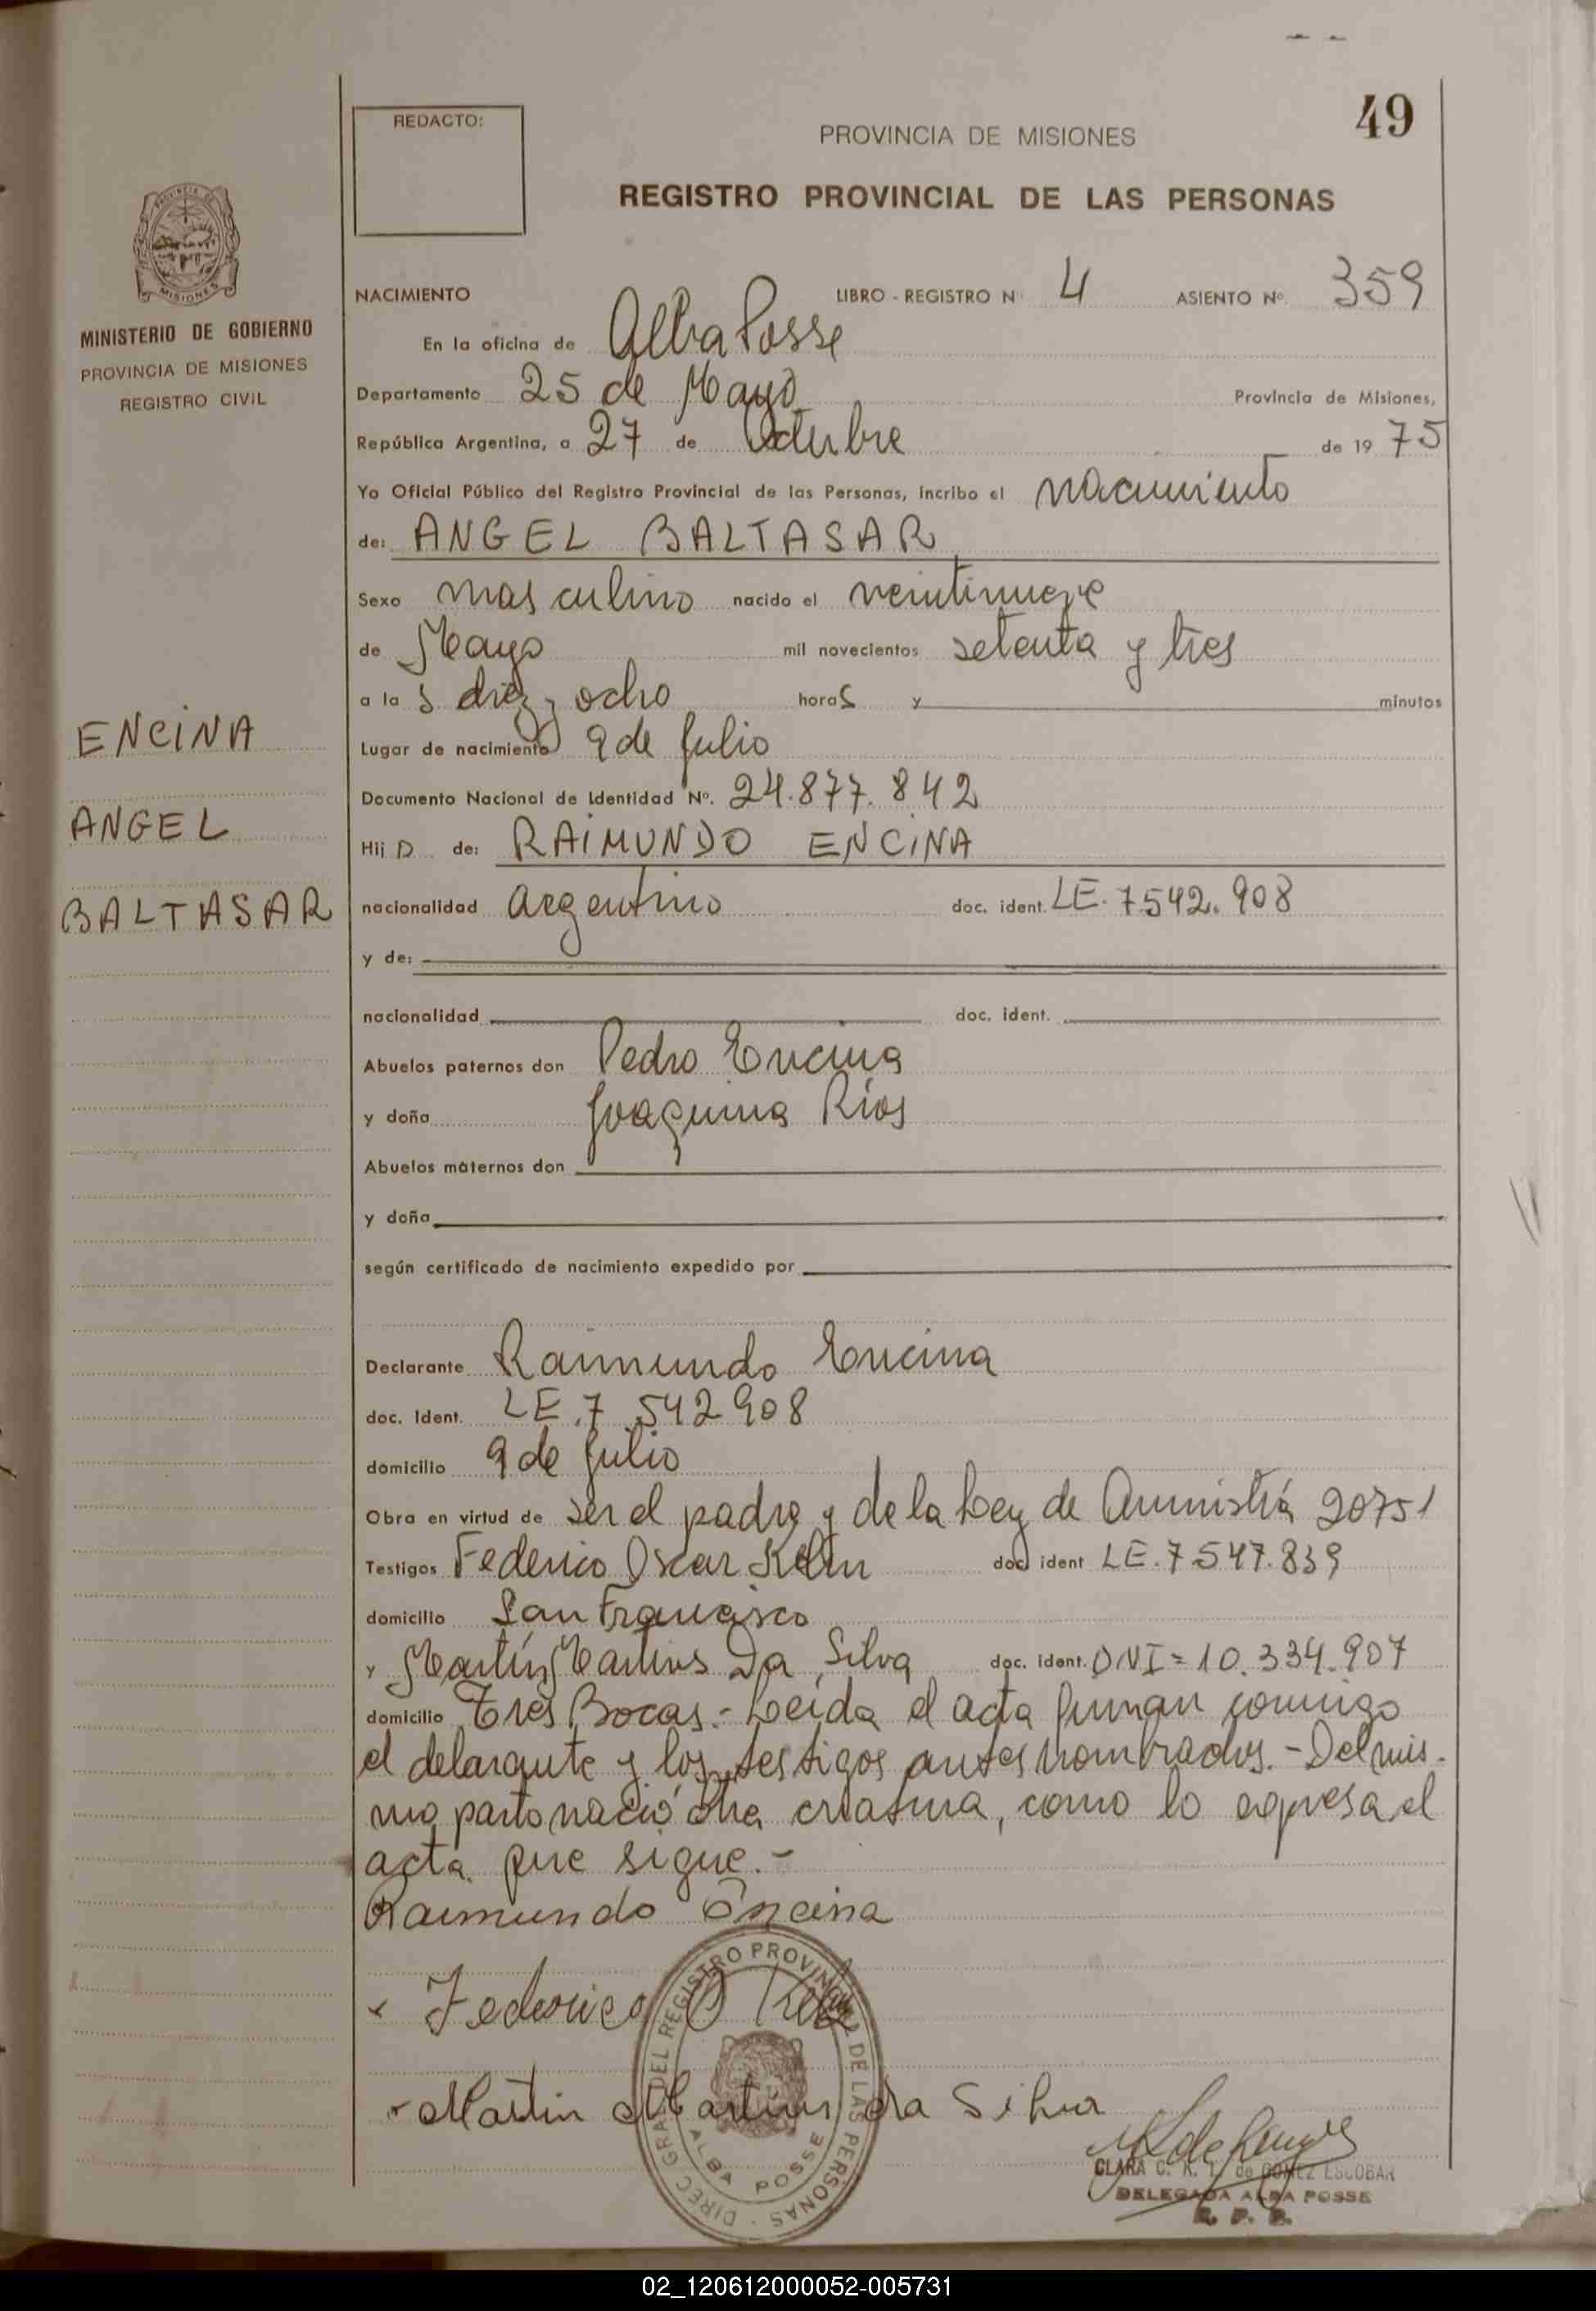 49
REDACTO:
PROVINCIA DE MISIONES
REGISTRO PROVINCIAL DE LAS PERSONAS
MISIONES
MINISTERIO DE GOBIERNO
PROVINCIA DE MISIONES
REGISTRO CIVIL
NACIMIENTO LIBRO - REGISTRO Nº 4 ASIENTO Nº. 359
En la oficina de Alba Posse
Departamento 25 de Mayo Provincia de Misiones,
República Argentina, a 27 de Octubre de 19 75
Yo Oficial Público del Registro Provincial de las Personas, incribo el nacimiento
de: ANGEL BALTASAR
Sexo masculino nacido el veintinueve
de Mayo mil novecientos setenta y tres
a la s diez y ocho horas y minutos
ENCINA
Lugar de nacimiento 9 de Julio
Documento Nacional de Identidad Nº. 24.877.842
ANGEL
Hij o de: RAIMUNDO ENCINA
BALTASAR
nacionalidad argentino doc. ident. LE. 7.542.908
y de:
nacionalidad doc. ident.
Abuelos paternos don Pedro Encina
y doña Joaquina Ríos
Abuelos maternos don
y doña
según certificado de nacimiento expedido por
Declarante Raimundo Encina
doc. Ident. LE. 7.542908
domicilio 9 de Julio
Obra en virtud de ser el padre y de la Ley de Amnistía 20751
Testigos Federico Oscar doc ident LE. 7.547.839
domicilio San Francisco
y Martín Martins Da Silva doc. ident. DNI = 10.334.907
domicilio Tres Bocas.- Leída el acta firman conmigo
el delarante y los testigos antes nombrados.- Del mis-
mo parto nació otra criatura, como lo expresa el
acta que sigue.-
Raimundo Encina
Federico O
Martin Martins da Silva
DIREC. GRAL. DEL REGISTRO PROVINCIAL DE LAS PERSONAS
ALBA POSSE
CLARA C. K. L. de GOMEZ ESCOBAR
DELEGADA ALBA POSSE
R. P. P.
02_120612000052-005731